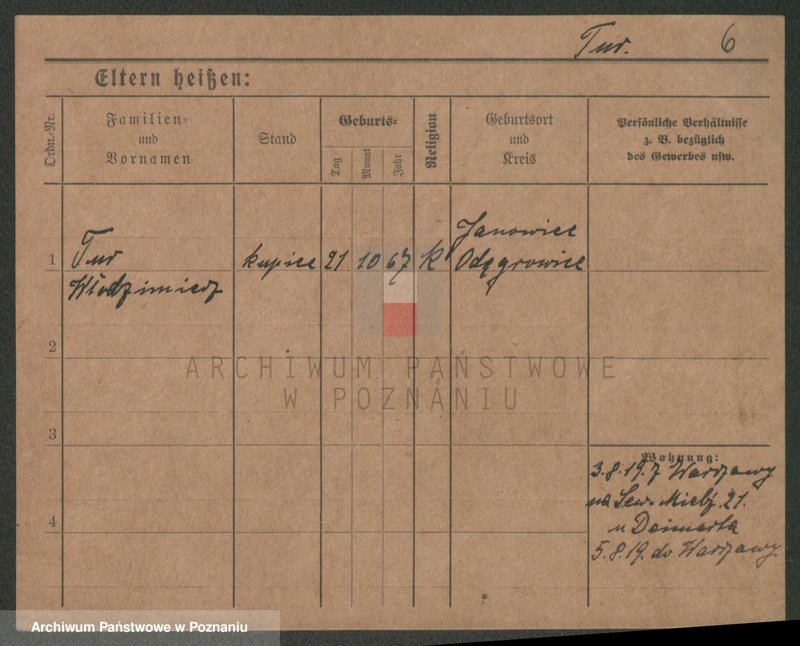 Tur. 6
Eltern heißen:
Ordn.-Nr.
Familien-
und
Vornamen
Stand
Geburts-
Tag
Monat
Jahr
Religion
Geburtsort
und
Kreis
Persönliche Verhältnisse
z. B. bezüglich
des Gewerbes usw.
1
Tur
Włodzimierz
kupiec
21
10
67
K
Janowiec
2
3
4
Wohnung:
3.8.19. z Warszawy
na Sew. Mielż. 21.
u
5.8.19. do Warszawy.
ARCHIWUM PAŃSTWOWE
W POZNANIU
Archiwum Państwowe w Poznaniu